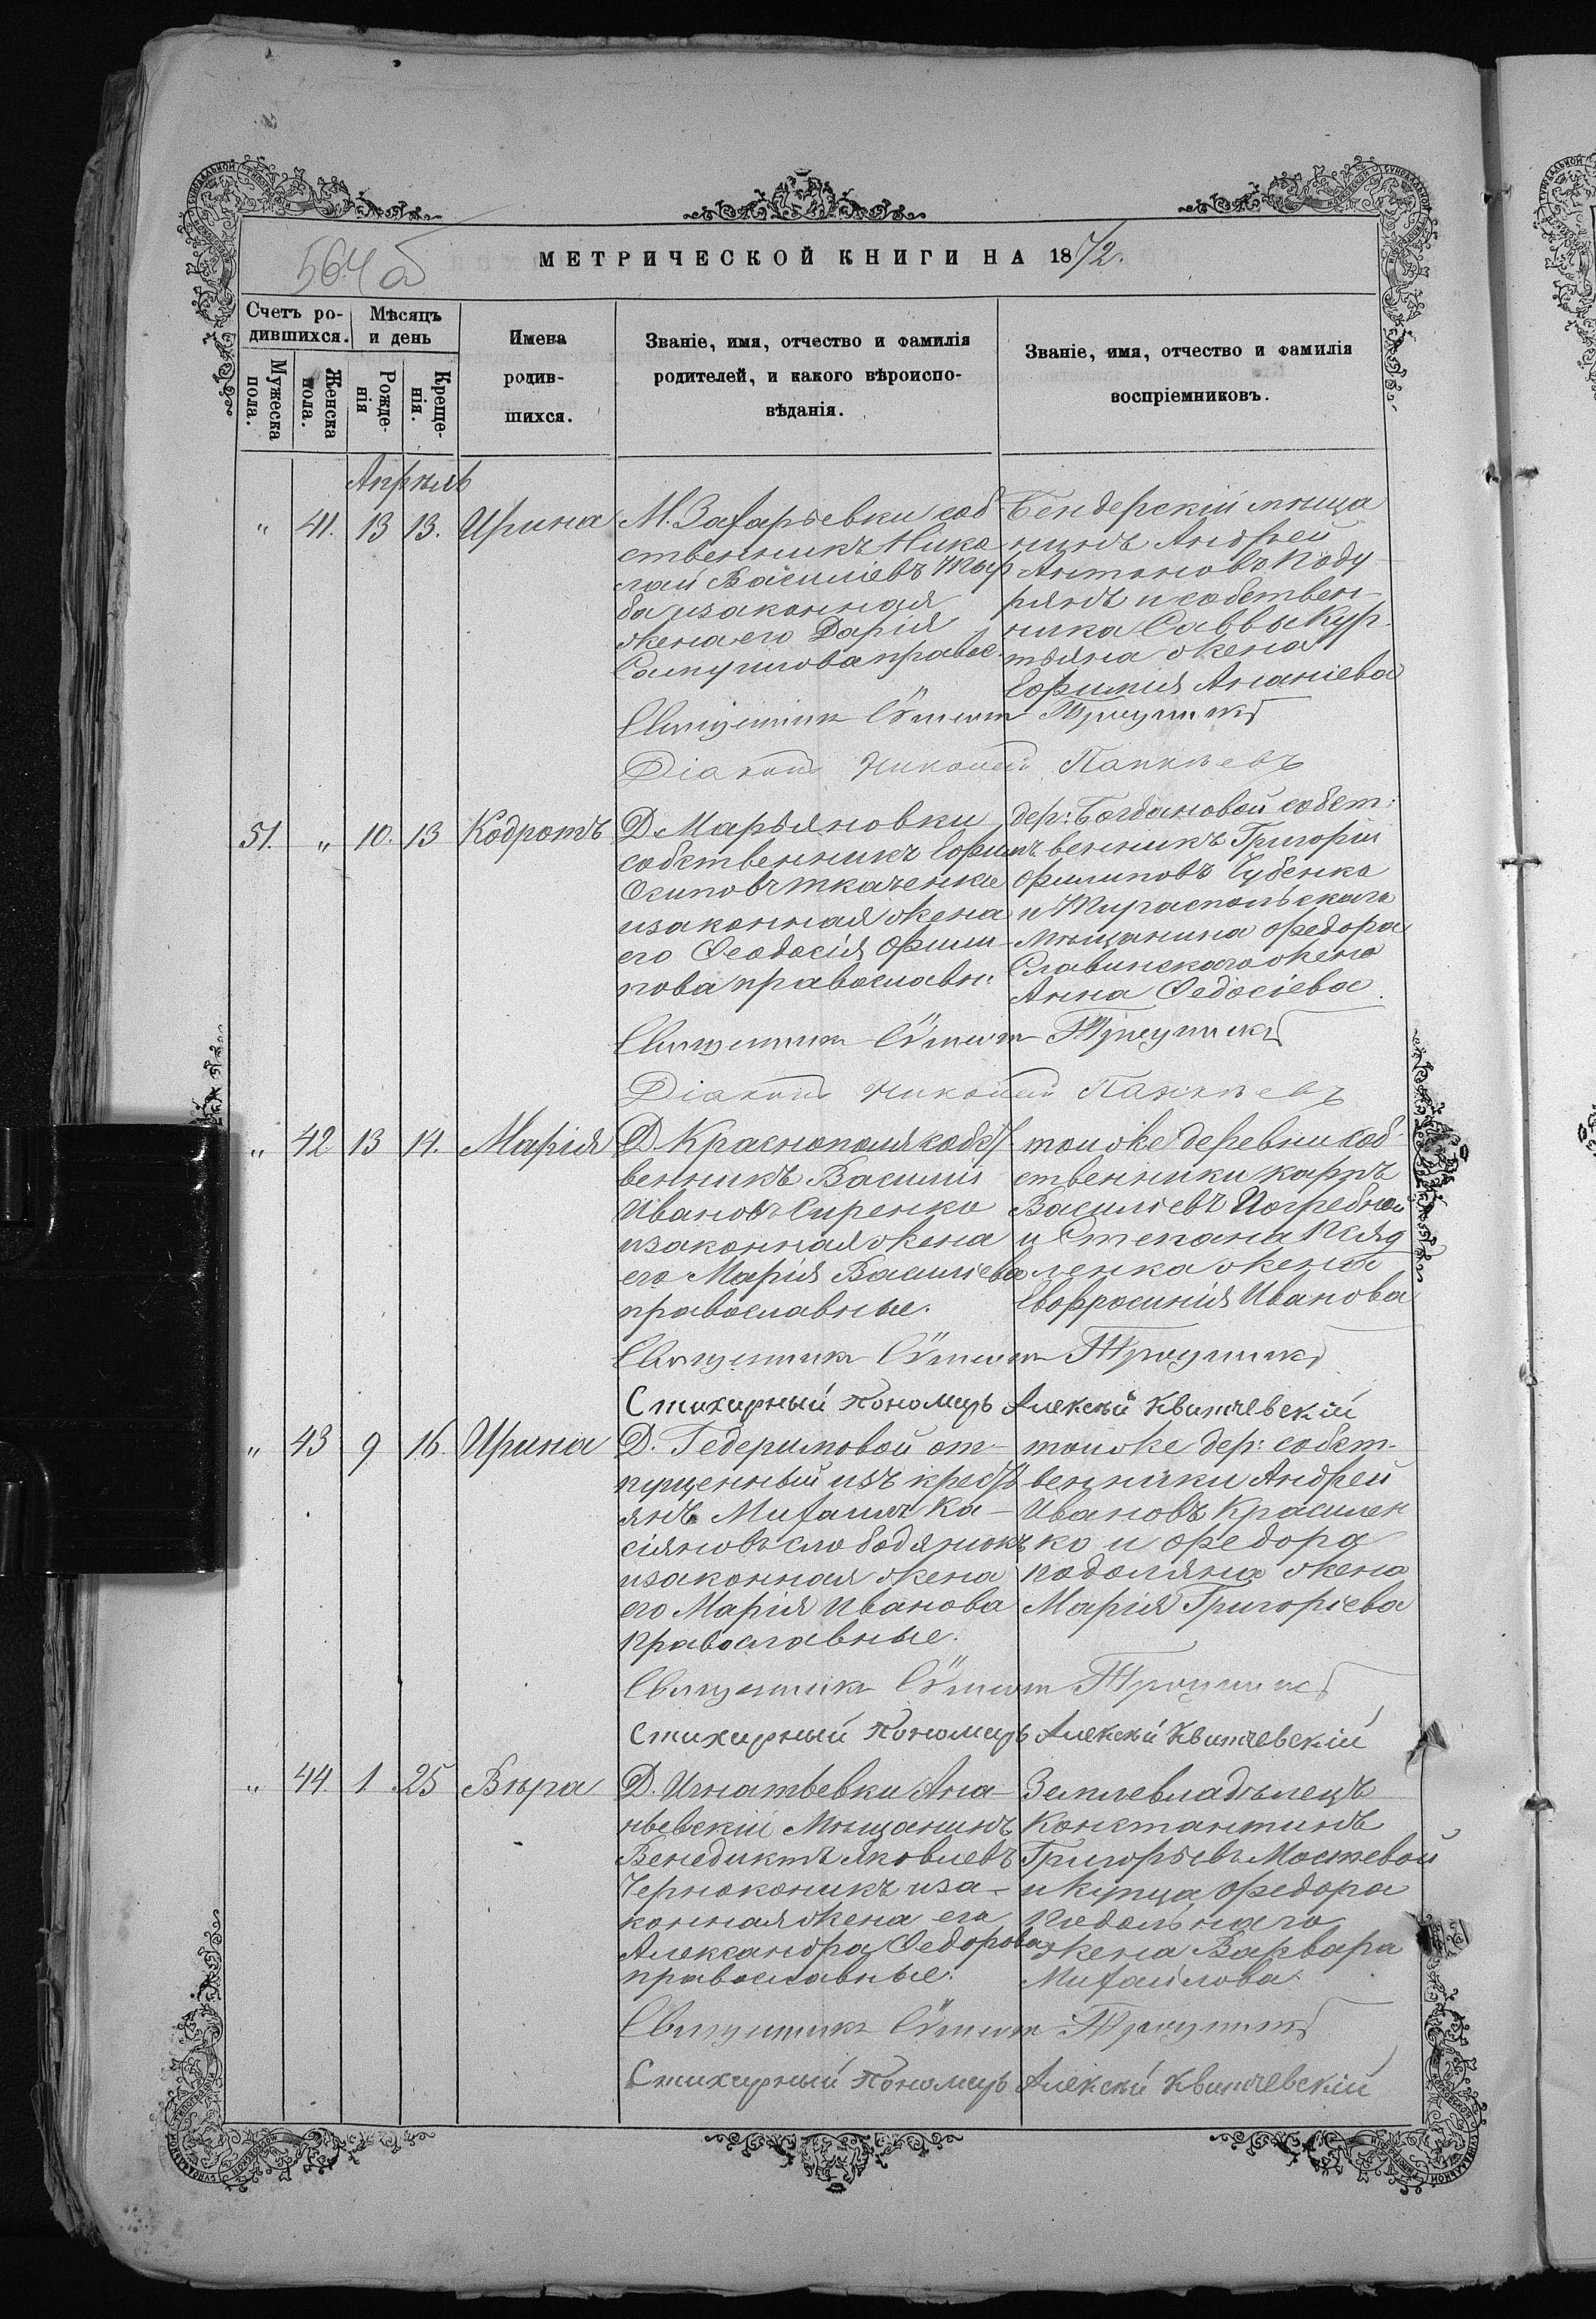 564 об
МЕТРИЧЕСКОЙ КНИГИ НА 1872.
Счетъ ро-
дившихся.
Мѣсяцъ
и день
Мужеска
пола.
Женска
пола.
Рожде-
нія
Креще-
нія.
Имена
родив-
шихся.
Званіе, имя, отчество и фамилія
родителей, и какого вѣроиспо-
вѣданія.
Званіе, имя, отчество и фамилія
воспріемниковъ.
Апрѣль
" 41. 13 13. Ирина
М. Захарьевки соб
ственникъ Нико
лай Василіевъ
ба и законная
жена его Дарія
Самуилова правос.
Бендерскій мѣща
нинъ Андрей
Антоновъ Поду-
рянъ и собствен-
ника Саввы Кур-
тѣяна жена
Ефимія Ананіева
Священникъ Троицкій
Діаконъ Николай
51. " 10. 13 Кодротъ
Д. Марьяновки
собственникъ Ефимъ
Осиповъ Ткаченко
и законная жена
его Феодосія Фили-
пова православн:
дер: Богдановой собст:
венникъ Григорій
Филиповъ Чубенко
и Тираспольскаго
мѣщанина Федора
Славинскаго жена
Анна Федосіева
Священникъ Троицкій
Діаконъ Николай
" 42 13 14. Марія
Д. Краснополя собст
венникъ Василій
Ивановъ Сиренко
и законная жена
его Марія Василіева
православные.
той же деревни соб-
ственники Карпъ
Василіевъ Погребной
и Степана
ленка жена
Евфросинія Иванова
Священникъ Троицкій
Стихарный Пономарь Алексѣй Квитчевскій
" 43 9 16 Ирина
Д. Гедеримовой от-
пущенный изъ крест
янъ Михаилъ Ка-
сіяновъ Слободянюкъ
и законная жена
его Марія Иванова
православные.
той же дер: собст-
венники Андрей
Ивановъ Красилен
ко и Федора
Подоляна жена
Марія Григоріева
Священникъ Троицкій
Стихарный Пономарь Алексѣй Квитчевскій
" 44. 1. 25 Вѣра
Д. Игнатьевки Ана-
ньевскій Мѣщанинъ
Венедиктъ Яковлевъ
Черноконикъ и за-
конная жена его
Александра Федорова
православные.
Землевладѣлецъ
Константинъ
Григорьевъ Мостевой
и купца Федора
Подольнаго
жена Варвара
Михайлова.
Священникъ Троицкій
Стихарный Пономарь Алексѣй Квитчевскій